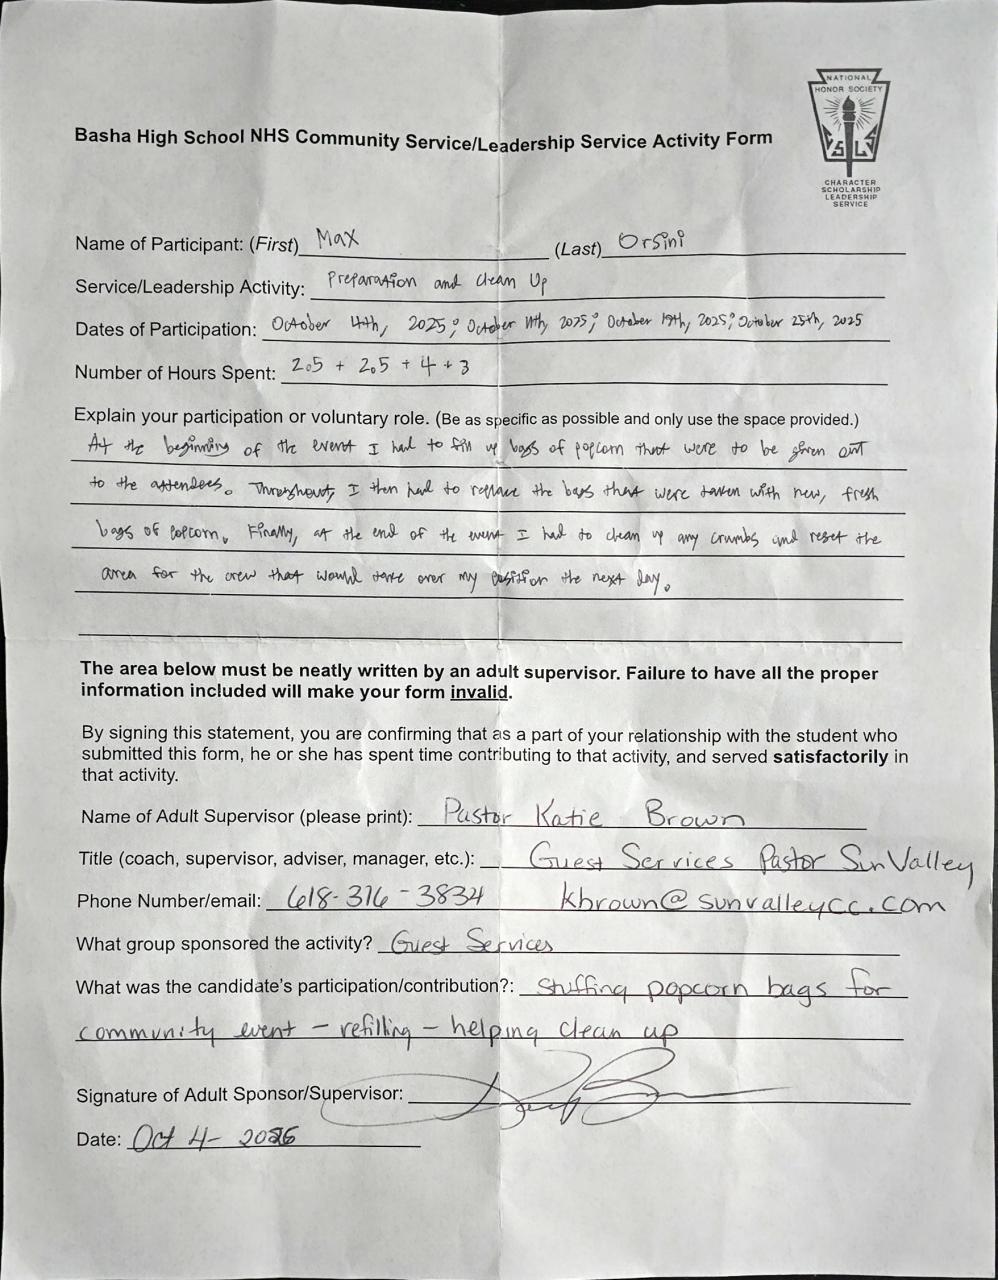 NATIONAL
HONOR SOCIETY
C S L S
CHARACTER
SCHOLARSHIP
LEADERSHIP
SERVICE
Basha High School NHS Community Service/Leadership Service Activity Form
Name of Participant: (First) Max (Last) Orsini
Service/Leadership Activity: Preparation and Clean Up
Dates of Participation: October 4th, 2025; October 11th, 2025; October 19th, 2025; October 25th, 2025
Number of Hours Spent: 2.5 + 2.5 + 4 + 3
Explain your participation or voluntary role. (Be as specific as possible and only use the space provided.)
At the beginning of the event I had to fill up bags of popcorn that were to be given out
to the attendees. Throughout, I then had to replace the bags that were taken with new, fresh
bags of popcorn. Finally, at the end of the event I had to clean up any crumbs and reset the
area for the crew that would take over my position the next day.
The area below must be neatly written by an adult supervisor. Failure to have all the proper
information included will make your form invalid.
By signing this statement, you are confirming that as a part of your relationship with the student who
submitted this form, he or she has spent time contributing to that activity, and served satisfactorily in
that activity.
Name of Adult Supervisor (please print): Pastor Katie Brown
Title (coach, supervisor, adviser, manager, etc.): Guest Services Pastor Sun Valley
Phone Number/email: 618-316-3834 kbrown@sunvalleycc.com
What group sponsored the activity? Guest Services
What was the candidate's participation/contribution?: stuffing popcorn bags for
community event - refilling - helping clean up
Signature of Adult Sponsor/Supervisor:
Date: Oct 4-